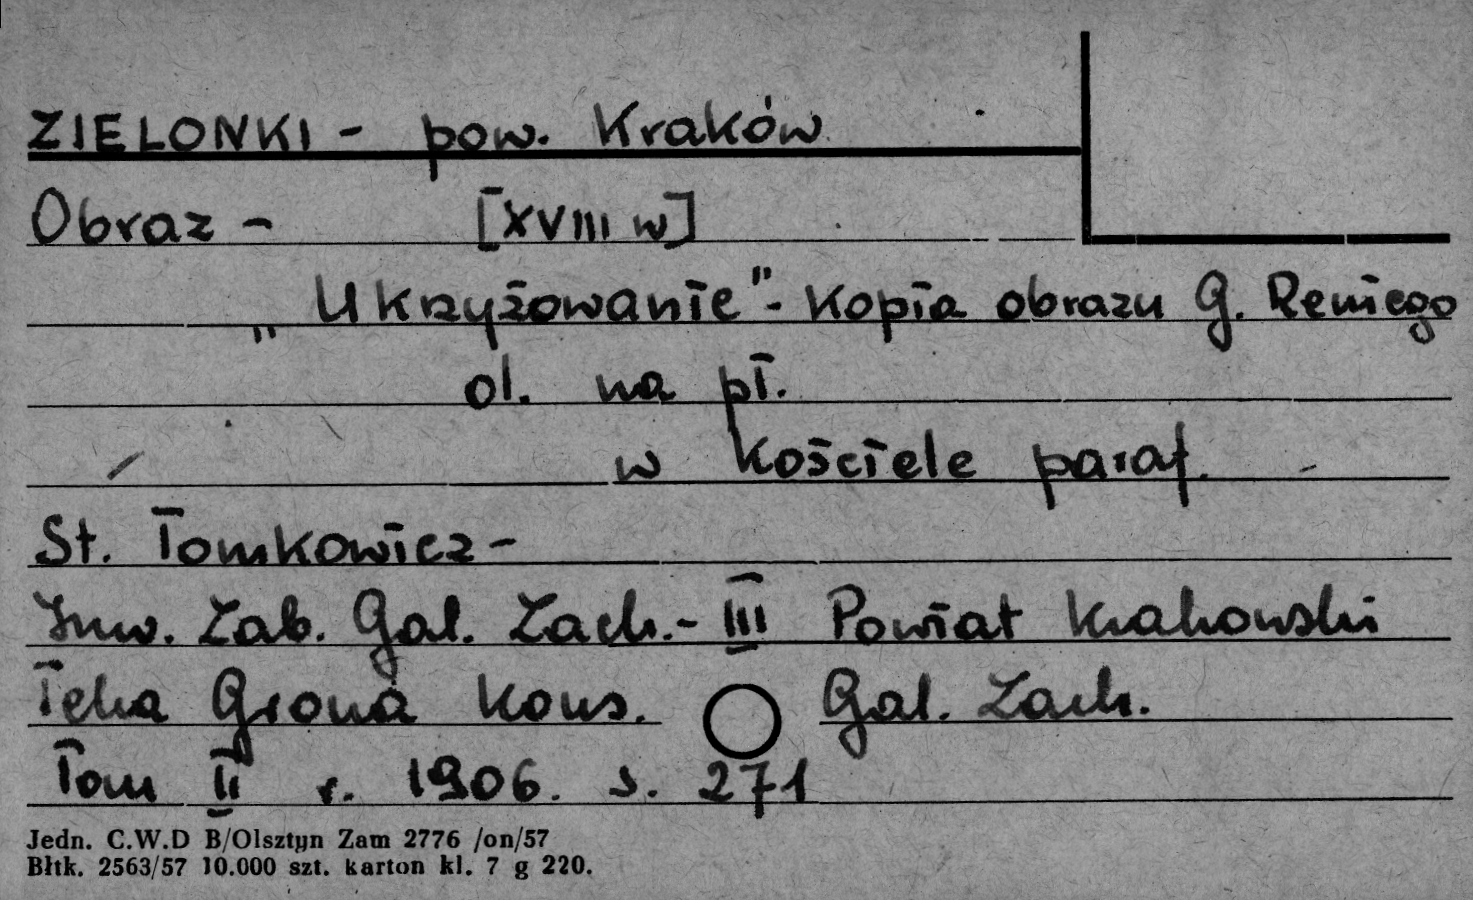 ZIELONKI - pow. Kraków
Obraz - [XVIII w]
„Ukrzyżowanie" - Kopia obrazu G. Reniego
ol. na pł.
w kościele paraf.
St. Tomkowicz -
Inw. Zab. Gal. Zach. - III Powiat Krakowski
Teka Grona Kons. Gal. Zach.
Tom II r. 1906. s. 271
Jedn. C.W.D B/Olsztyn Zam 2776 /on/57
Błtk. 2563/57 10.000 szt. karton kl. 7 g 220.